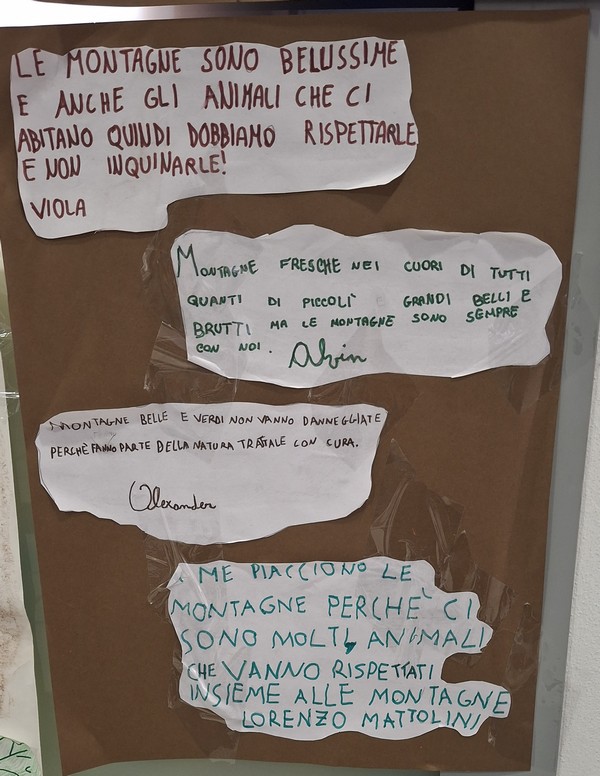 LE MONTAGNE SONO BELLISSIME
E ANCHE GLI ANIMALI CHE CI
ABITANO QUINDI DOBBIAMO RISPETTARLE
E NON INQUINARLE!
VIOLA
MONTAGNE FRESCHE NEI CUORI DI TUTTI
QUANTI DI PICCOLI GRANDI BELLI E
BRUTTI MA LE MONTAGNE SONO SEMPRE
CON NOI. Alvin
MONTAGNE BELLE E VERDI NON VANNO DANNEGGIATE
PERCHÈ FANNO PARTE DELLA NATURA TRATTALE CON CURA.
Alexander
A ME PIACCIONO LE
MONTAGNE PERCHÈ CI
SONO MOLTI, ANIMALI
CHE VANNO RISPETTATI
INSIEME ALLE MONTAGNE
LORENZO MATTOLINI